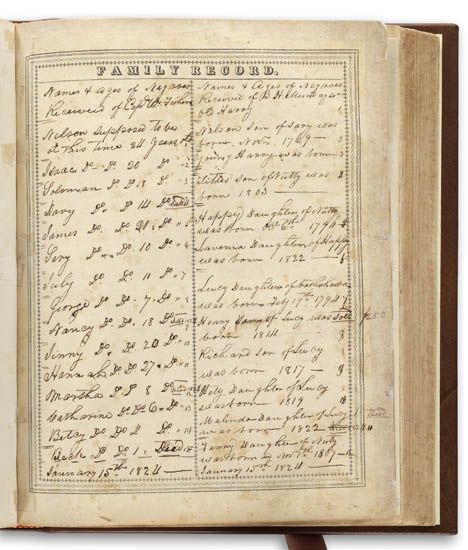 FAMILY RECORD.
Names & Ages of Negroes
Received of Capt Wm
Nelson supposed to be
at this time 24 years
Isaac Do Do 20 Do
Solomon Do Do 8 Do
Davy Do Do 14 Do Dead
James Do Do 21 Do
Sary Do Do 10 Do
July Do Do 11 Do 7
George Do Do 7 Do 8
Nancy Do Do 18 Do
Jinny Do Do 20 Do
Hannah Do Do 27 Do
Martha Do Do 8 Do
Catharine Do Do 6 Do
Betsy Do Do 4 Do
Beck Do Do 1 Dead
January 15th 1824
Names & Ages of Negroes
Received of
old Harry
Nelson Son of Sary was
born Novr 1769
young Harry was born
Titus Son of Nutty was
born 1803
Happy Daughter of Nutty
was born
Lavenia Daughter of Happy
was born 1822
Lucy Daughter of
was born July 19th 1794
Henry Son of Lucy was Sold 1250
born 1814
Richard Son of Lucy
was born 1817
Daughter of Lucy
was born 1819
Malinda Daughter of Lucy Dead
was born 1822
Fanny Daughter of Nutty
was born
January 15th 1824